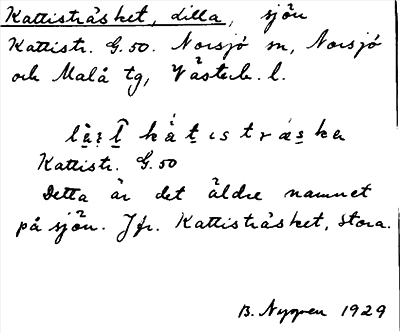 Kattisträsket, Lilla, sjön
Kattistr. G.50. Norsjö sn, Norsjö
och Malå tg, Västerb. l.
Kattistr. G.50
Detta är det äldre namnet
på sjön. Jfr. Kattisträsket, Stora.
B. Nygren 1929